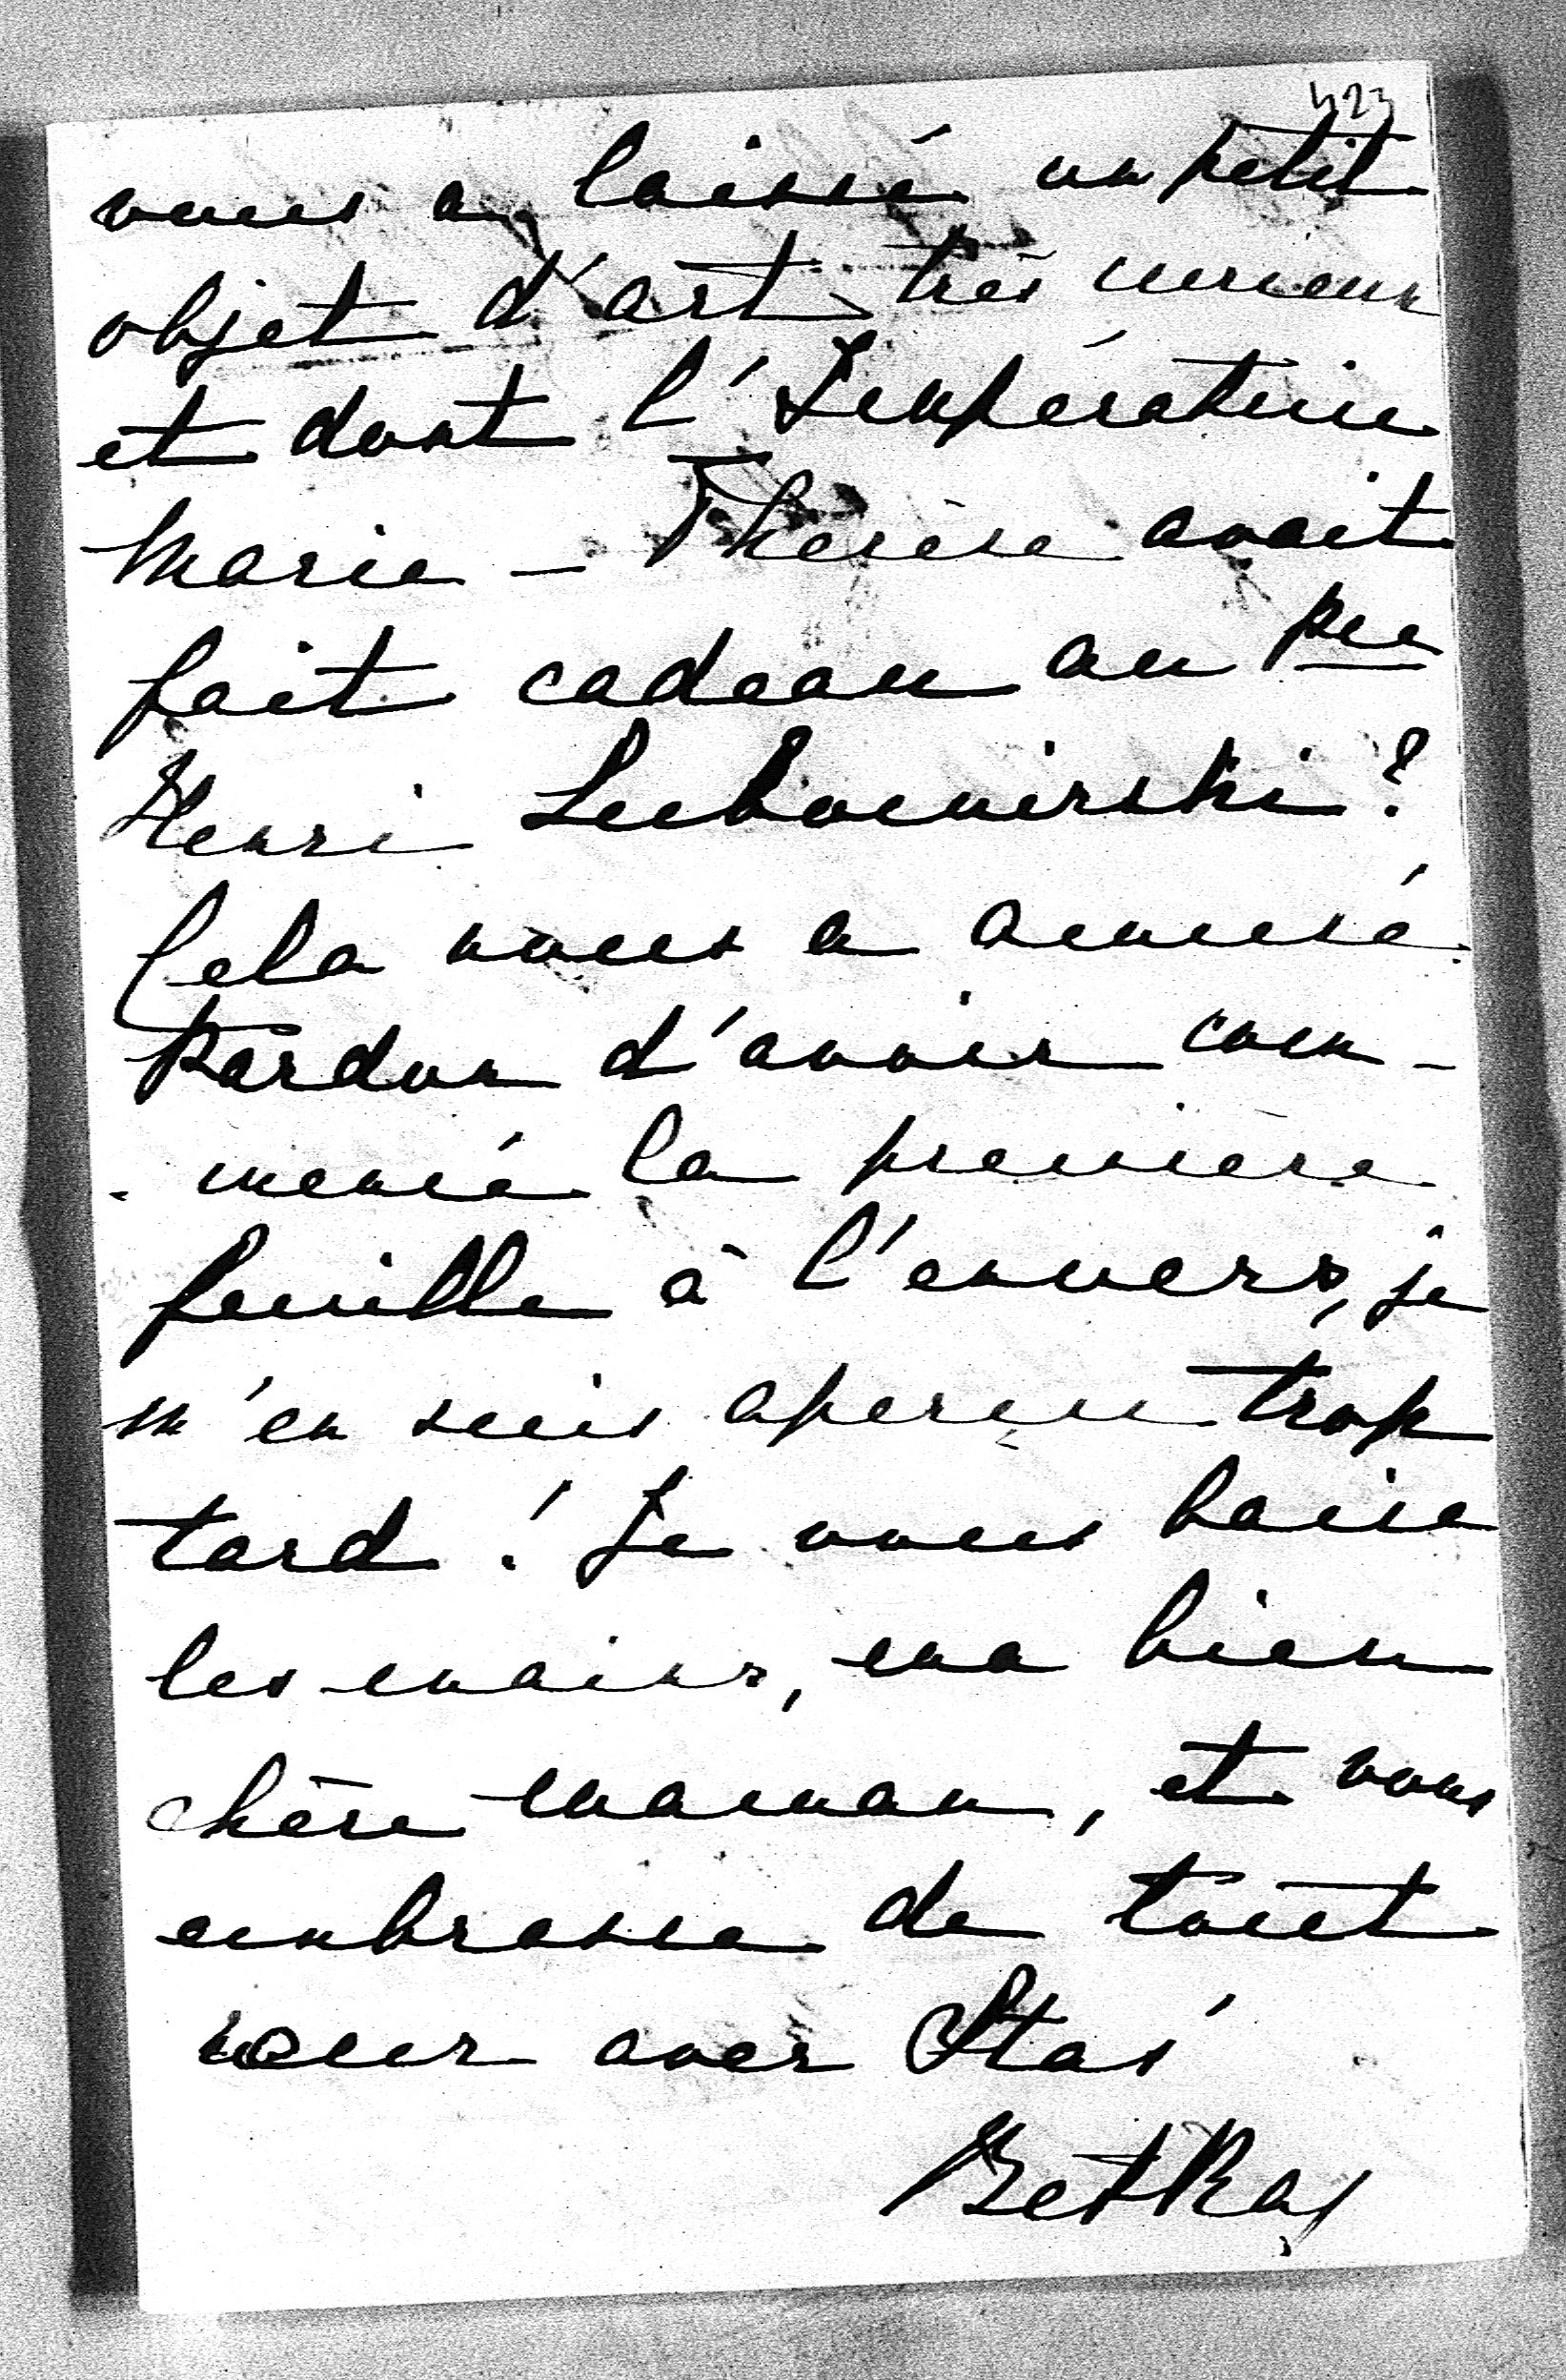 423
vous a laissé un petit
objet d'art très curieux
et dont l'Impératrice
Marie-Thérèse avait
fait cadeau au pce
Henri Lubomirski?
Cela nous a amusé.
Pardon d'avoir com-
-mencé la première
feuille à l'envers, je
m'en suis aperçu trop
tard! Je vous baise
les mains, ma bien
chère maman, et vous
embrasse de tout
cœur avec Staś
Betka